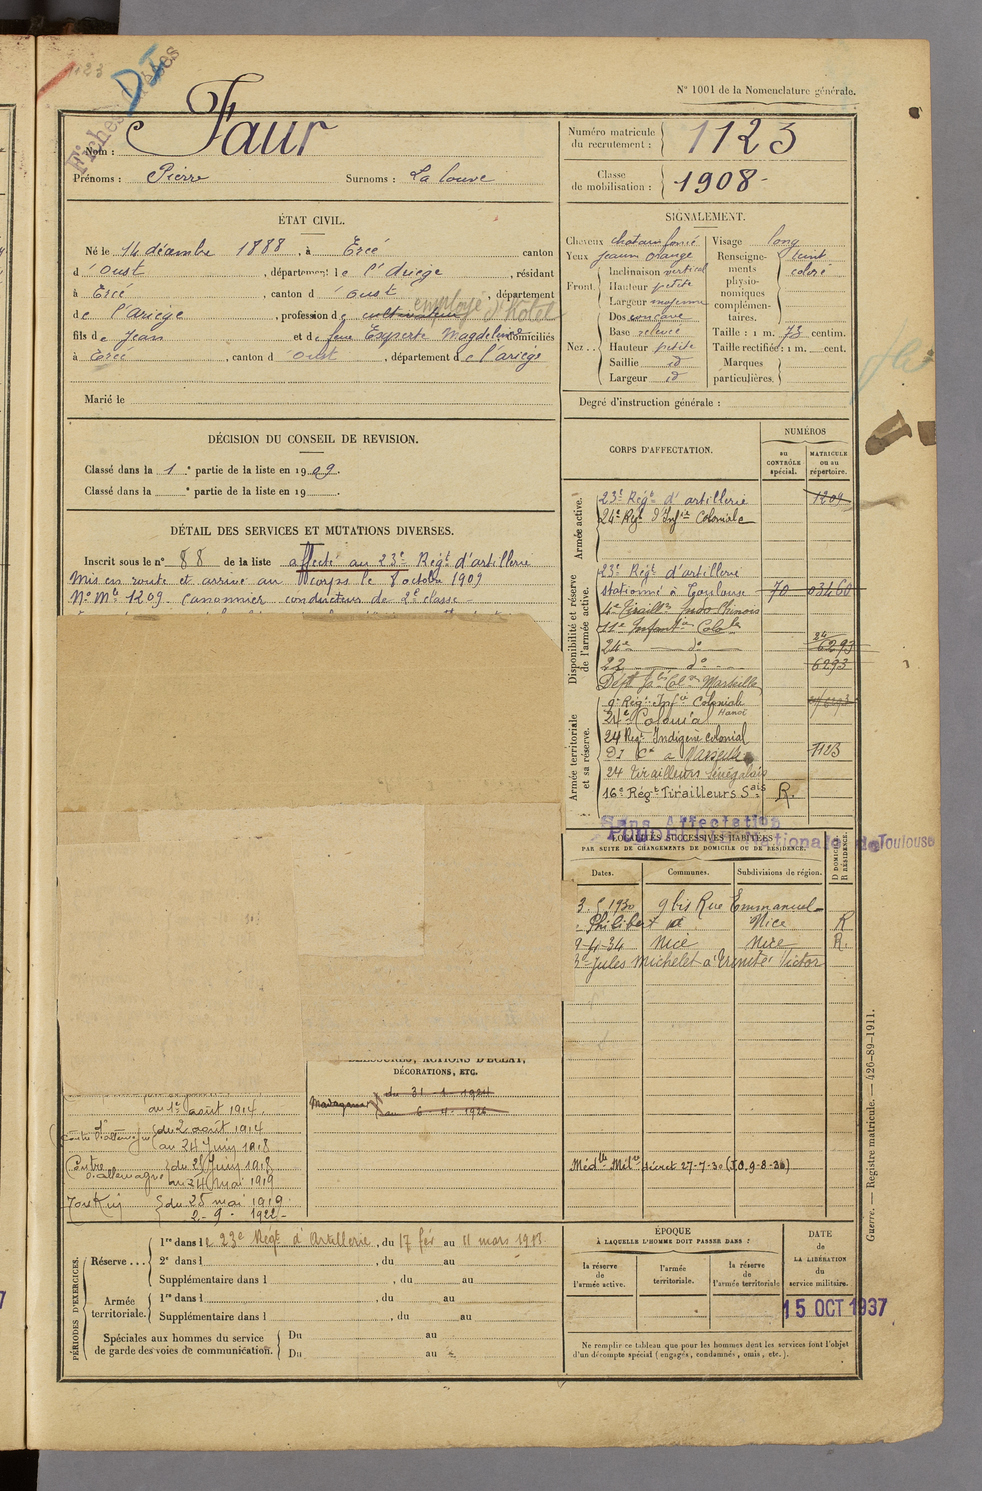 1123
DI
Fiches
N° 1001 de la Nomenclature générale.
Nom : Faur
Prénoms : Pierre Surnoms : La louve
Numéro matricule du recrutement : 1123
Classe de mobilisation : 1908
ÉTAT CIVIL.
Né le 14 décembre 1888, à Ercé canton
d'Oust, département de l'Ariège, résidant
à Ercé, canton d'Oust, département
de l'Ariège, profession de cultivateur employé d'hôtel
fils de Jean et de feue Experte Magdeleine domiciliés
à Ercé, canton d'Oust, département de l'ariège
Marié le
SIGNALEMENT.
Cheveux chatain foncé
Yeux jaune orange
Front. Inclinaison vertical
Hauteur petite
Largeur moyenne
Nez.. Dos concave
Base relevée
Hauteur petite
Saillie id
Largeur id
Visage long
Renseignements physionomiques complémentaires. teint coloré
Taille : 1 m. 73 centim.
Taille rectifiée : 1 m. cent.
Marques particulières.
Degré d'instruction générale :
DÉCISION DU CONSEIL DE REVISION.
Classé dans la 1e partie de la liste en 1909.
Classé dans la e partie de la liste en 19
DÉTAIL DES SERVICES ET MUTATIONS DIVERSES.
Inscrit sous le n° 88 de la liste affecté au 23e Régt d'artillerie
Mis en route et arrivé au corps le 8 octobre 1909
No Mle 1209. Canonnier conducteur de 2e classe
CORPS D'AFFECTATION.
NUMÉROS
au CONTRÔLE spécial.
MATRICULE ou au répertoire.
Armée active.
23e Régt d'artillerie 1209
24e Régt d'Infie Coloniale
Disponibilité et réserve de l'armée active.
23e Régt d'artillerie
stationné à Toulouse 70 03460
4e Tiraillrs Indo Chinois
11e Infantie Colole
24e do 24 6293
22 do 6293
Dépt Marseille
Armée territoriale et sa réserve.
9e Régt Infie Coloniale Hanoï
24e Colonial
24 Régt Indigène colonial
DI Ce à Marseille 1123
24 Tirailleurs Sénégalais
16e Régt Tirailleurs Sais R.
Sans Affectation
Toulouse
LOCALITÉS SUCCESSIVES HABITÉES
PAR SUITE DE CHANGEMENTS DE DOMICILE OU DE RÉSIDENCE.
Dates. Communes. Subdivisions de région. D DOMICILE R RÉSIDENCE.
1930 9 bis Rue Emmanuel
Philibert Nice R
9-4-34 Nice Nice R.
Jules Michelet à Trinité Victor
BLESSURES, ACTIONS D'ÉCLAT,
DÉCORATIONS, ETC.
Madagascar du 31-1-1924
au 6-4-1926
au 1er août 1914.
Contre l'allemagne du 2 août 1914
au 24 Juin 1918
Contre l'allemagne du 25 Juin 1918
au 24 Mai 1919
du 25 mai 1919
2-9-1922
Médlle Milre décret 27-7-30 (JO. 9-8-30)
PÉRIODES D'EXERCICES.
Réserve... 1re dans le 23e Régt d'Artillerie, du 17 fév au 11 mars 1913
2e dans l , du au
Supplémentaire dans l , du au
Armée territoriale. 1re dans l , du au
Supplémentaire dans l , du au
Spéciales aux hommes du service de garde des voies de communication. Du au
Du au
ÉPOQUE
À LAQUELLE L'HOMME DOIT PASSER DANS :
la réserve de l'armée active.
l'armée territoriale.
la réserve de l'armée territoriale
DATE de LA LIBÉRATION du service militaire.
15 OCT 1937
Ne remplir ce tableau que pour les hommes dont les services font l'objet
d'un décompte spécial (engagés, condamnés, omis, etc.).
Guerre. — Registre matricule. — 426-89-1911.